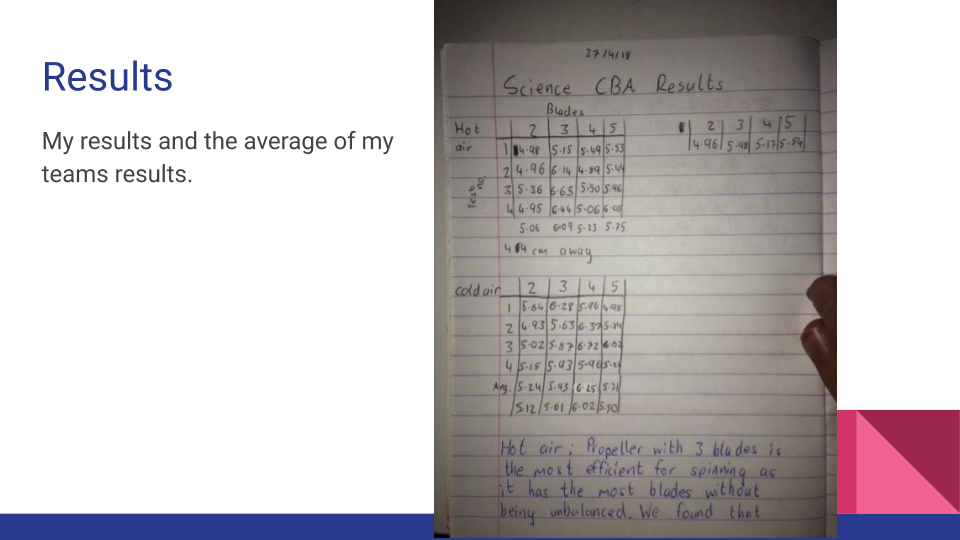 Results
My results and the average of my
teams results.
27/4/18
Science CBA Results
Blades
Hot air
2 3 4 5
1 4.98 5.15 5.49 5.53
2 4.96 6.14 4.89 5.44
3 5.36 6.63 5.50 5.96
4 4.95 6.44 5.06 6.08
5.06 6.09 5.23 5.75
Test no.
2 3 4 5
4.96 5.48 5.17 5.54
44 cm away
cold air
2 3 4 5
1 5.84 6.28 5.96 4.98
2 4.93 5.63 6.37 5.84
3 5.02 5.87 6.72 6.02
4 5.15 5.93 5.96
Avg. 5.24 5.93 6.25 5.71
5.12 5.61 6.02 5.50
Hot air: Propeller with 3 blades is
the most efficient for spinning as
it has the most blades without
being unbalanced. We found that